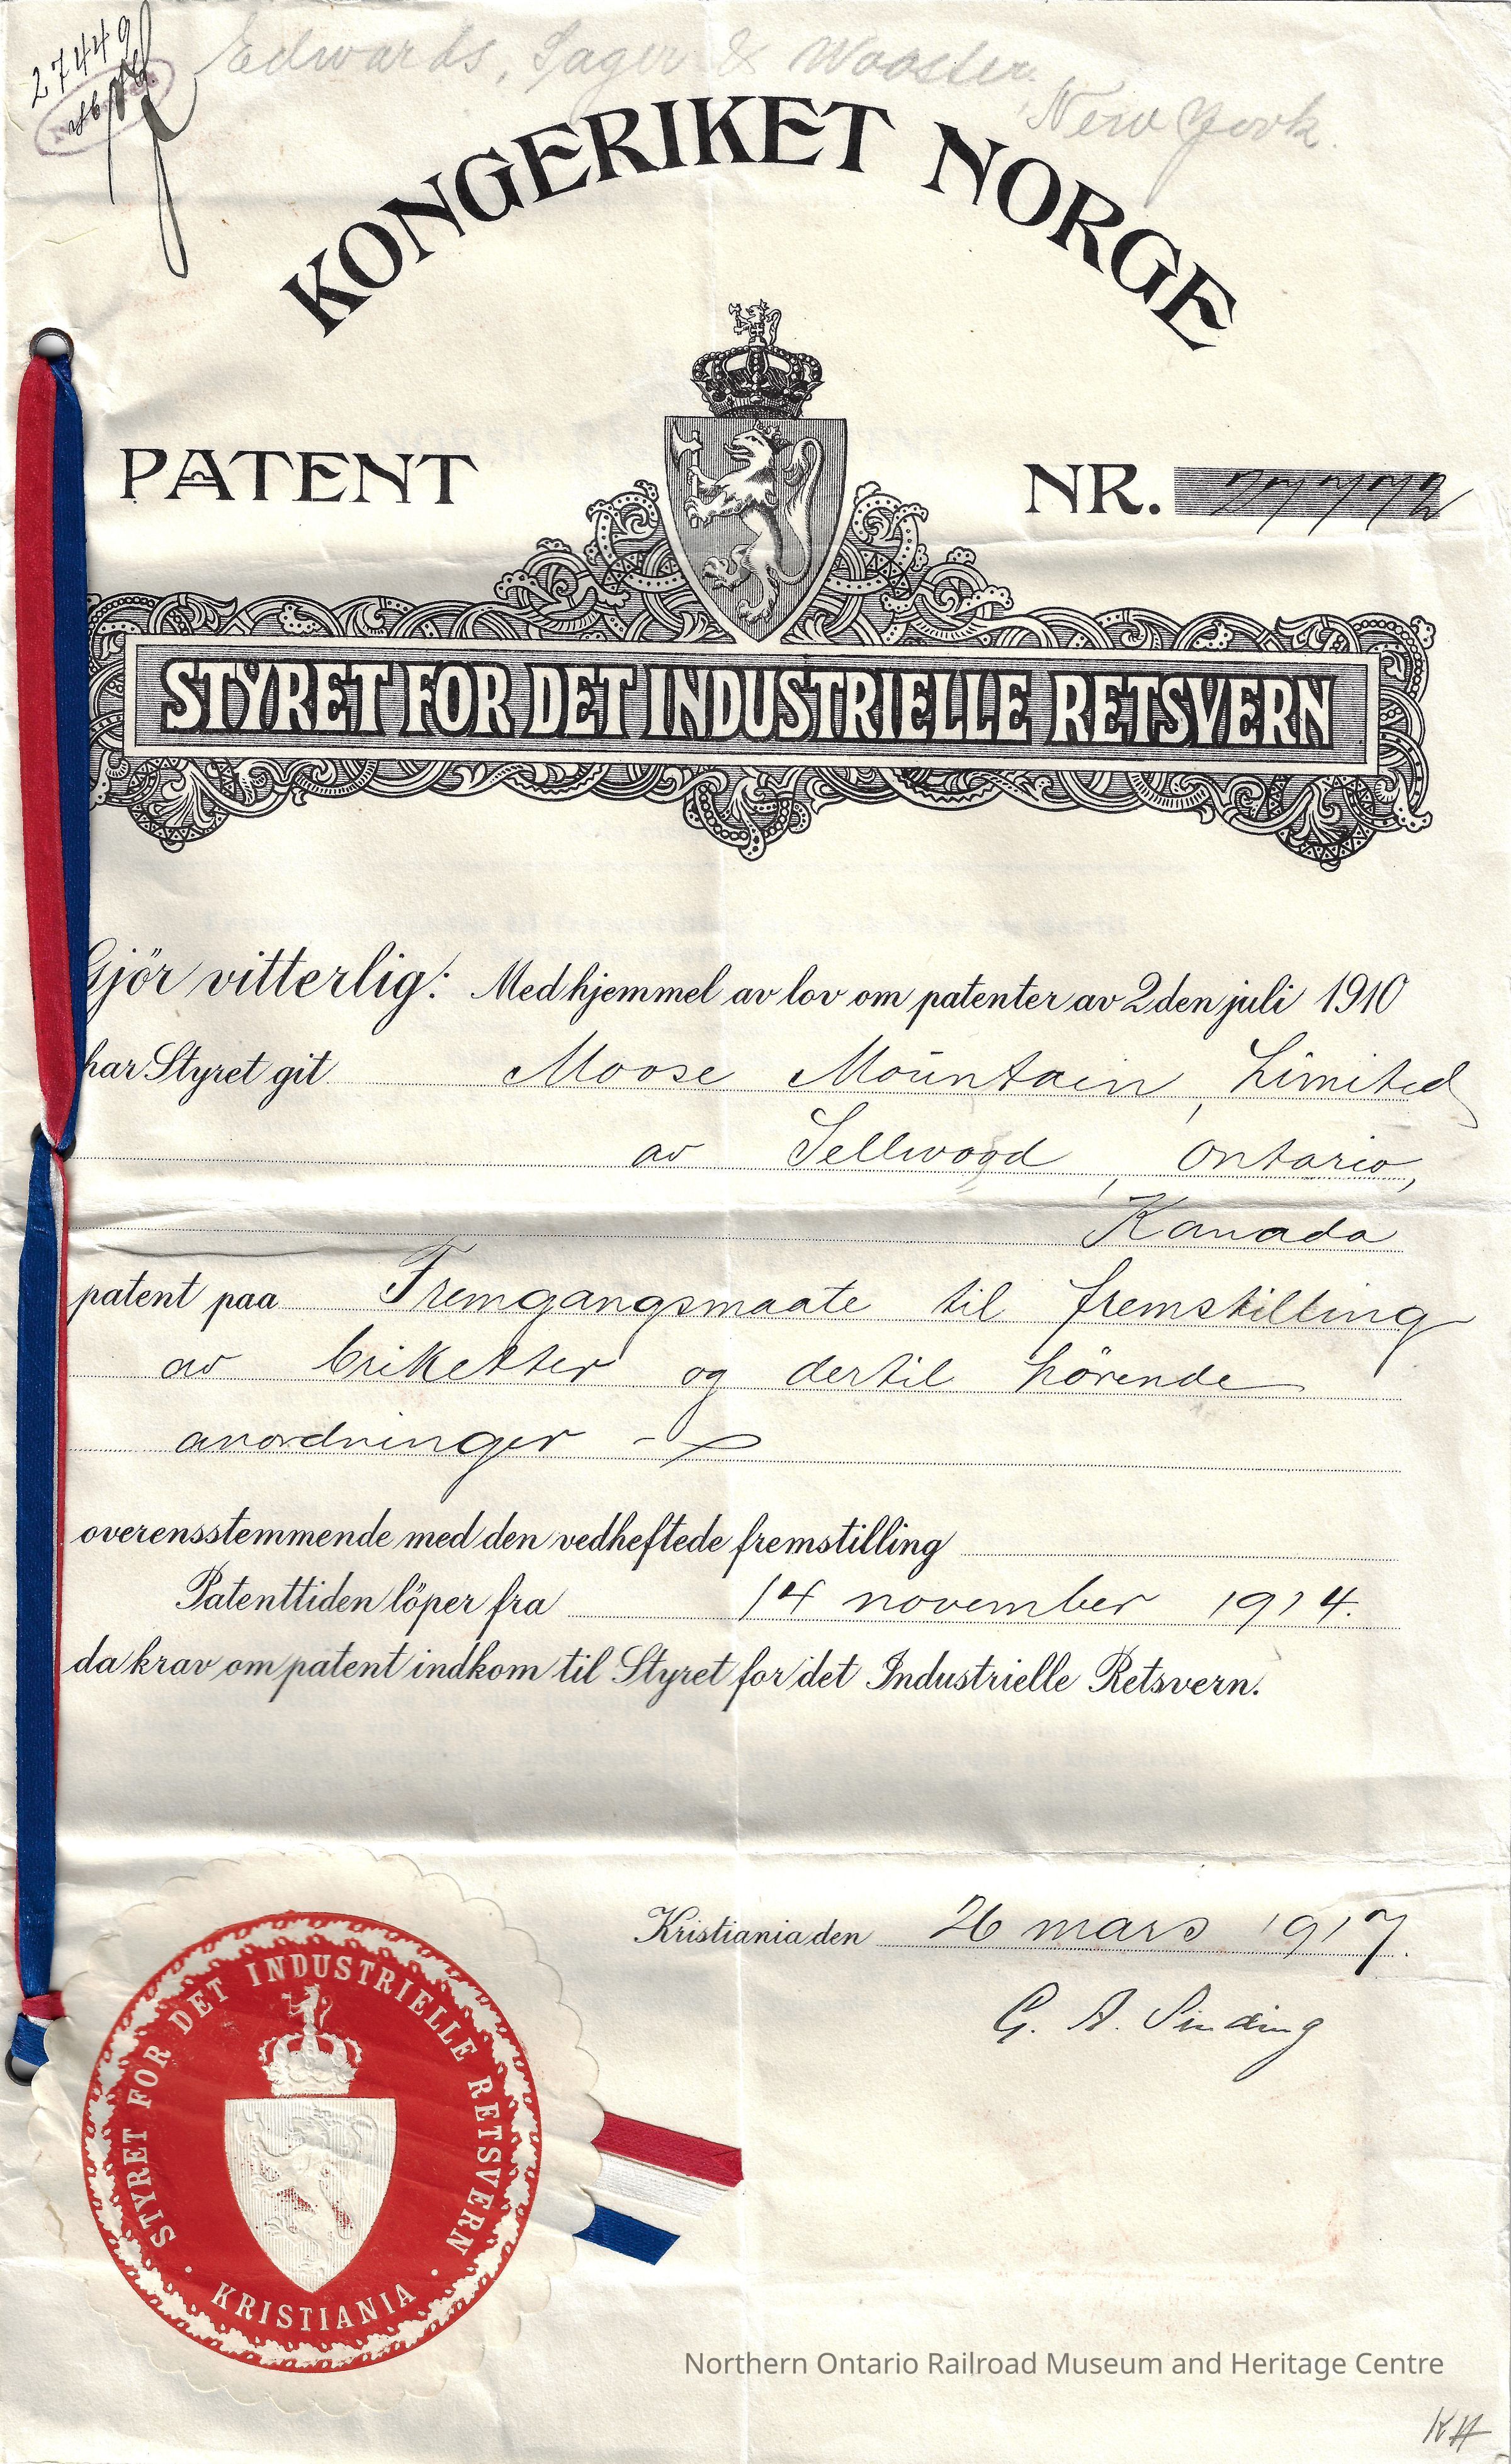 27449
Edwards, Sager & Wooster,
New York.
KONGERIKET NORGE
PATENT NR. 27772
STYRET FOR DET INDUSTRIELLE RETSVERN
Gjör vitterlig: Med hjemmel av lov om patenter av 2den juli 1910
har Styret git Moose Mountain, Limited
av Sellwood, Ontario,
Kanada
patent paa Fremgangsmaate til fremstilling
av briketter og dertil hørende
anordninger
overensstemmende med den vedheftede fremstilling
Patenttiden löper fra 14 november 1914.
da krav om patent indkom til Styret for det Industrielle Retsvern.
Kristiania den 26 mars 1917.
G. A. Sinding
STYRET FOR DET INDUSTRIELLE RETSVERN
· KRISTIANIA ·
Northern Ontario Railroad Museum and Heritage Centre
KH